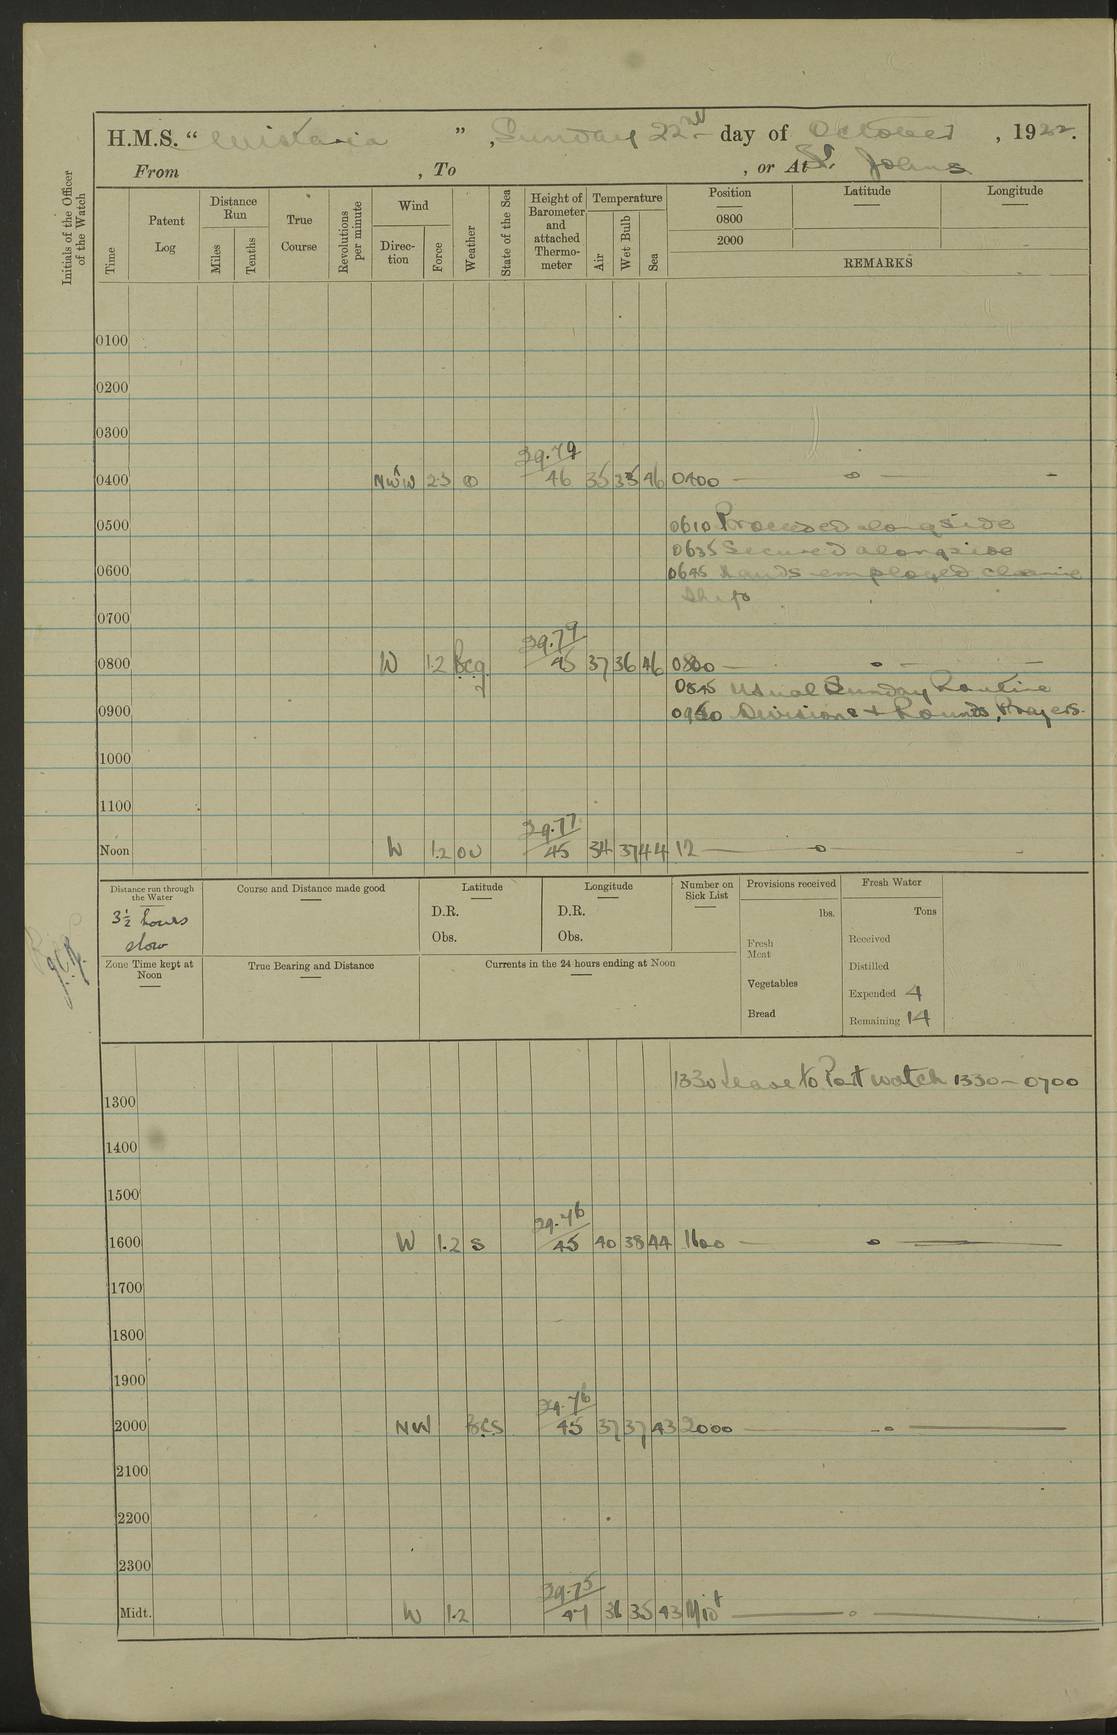 H.M.S. “ Wistaria ” , Sunday 22nd day of October , 1922.
From , To , or At St. Johns
Initials of the Officer of the Watch
Time
Patent Log
Distance Run
Miles
Tenths
True Course
Revolutions per minute
Wind
Direc-tion
Force
Weather
State of the Sea
Height of Barometer and attached Thermo-meter
Temperature
Air
Wet Bulb
Sea
Position
Latitude
Longitude
0800
2000
REMARKS
0100
0200
0300
29.79
0400 NWW 2.3 o 46 35 33 46 0400
0500 0610 Proceeded alongside
0635 Secured alongside
0600 0645 Hands employed cleaning
Ship
0700
29.79
0800 W 1.2 bcq 45 37 36 46 0800
0845 Usual Sunday Routine
0900 Divisions & Rounds, Prayers.
1000
1100
29.77
Noon W 1.2 ou 45 34 37 44 12
Distance run through the Water
3½ hours
slow
Course and Distance made good
Latitude
D.R.
Obs.
Longitude
D.R.
Obs.
Number on Sick List
Provisions received
lbs.
Fresh Meat
Vegetables
Bread
Fresh Water
Tons
Received
Distilled
Expended 4
Remaining 14
Zone Time kept at Noon
True Bearing and Distance
Currents in the 24 hours ending at Noon
1330 Leave to Port watch 1330 – 0700
1300
1400
1500
29.76
1600 W 1.2 s 45 40 38 44 1600
1700
1800
1900
29.76
2000 NW bcs 45 37 37 43 2000
2100
2200
2300
29.75
Midt. W 1.2 47 36 35 43 Midt